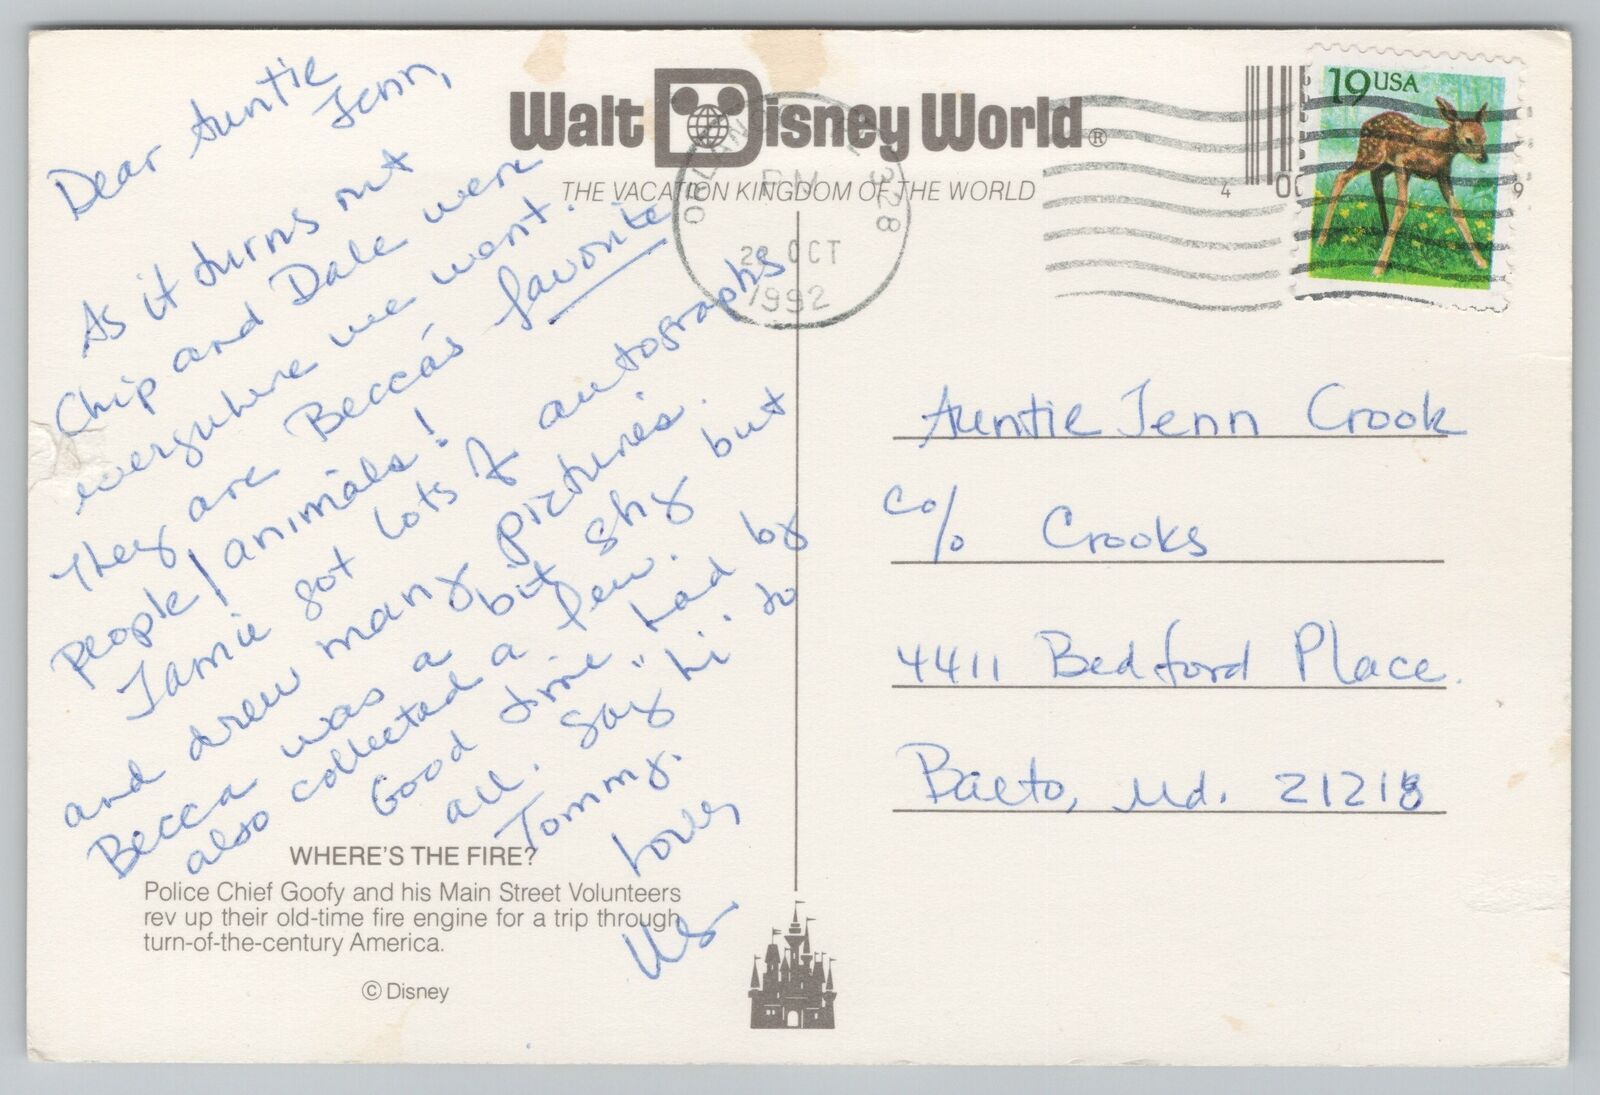 Dear Auntie
Jenn,
As it turns out
Chip and Dale were
everywhere we went.
They are Becca's favorite
people/animals!
Jamie got lots of autographs
and drew many pictures.
Becca was a bit shy but
also collected a few.
Good time had by
all. Say "hi" to
Tommy.
Love,
Us
Walt Disney World®
THE VACATION KINGDOM OF THE WORLD
PM
328
OCT
1992
19 USA
4
9
Auntie Jenn Crook
c/o Crooks
4411 Bedford Place.
Balto, Md. 21218
WHERE'S THE FIRE?
Police Chief Goofy and his Main Street Volunteers
rev up their old-time fire engine for a trip through
turn-of-the-century America.
© Disney